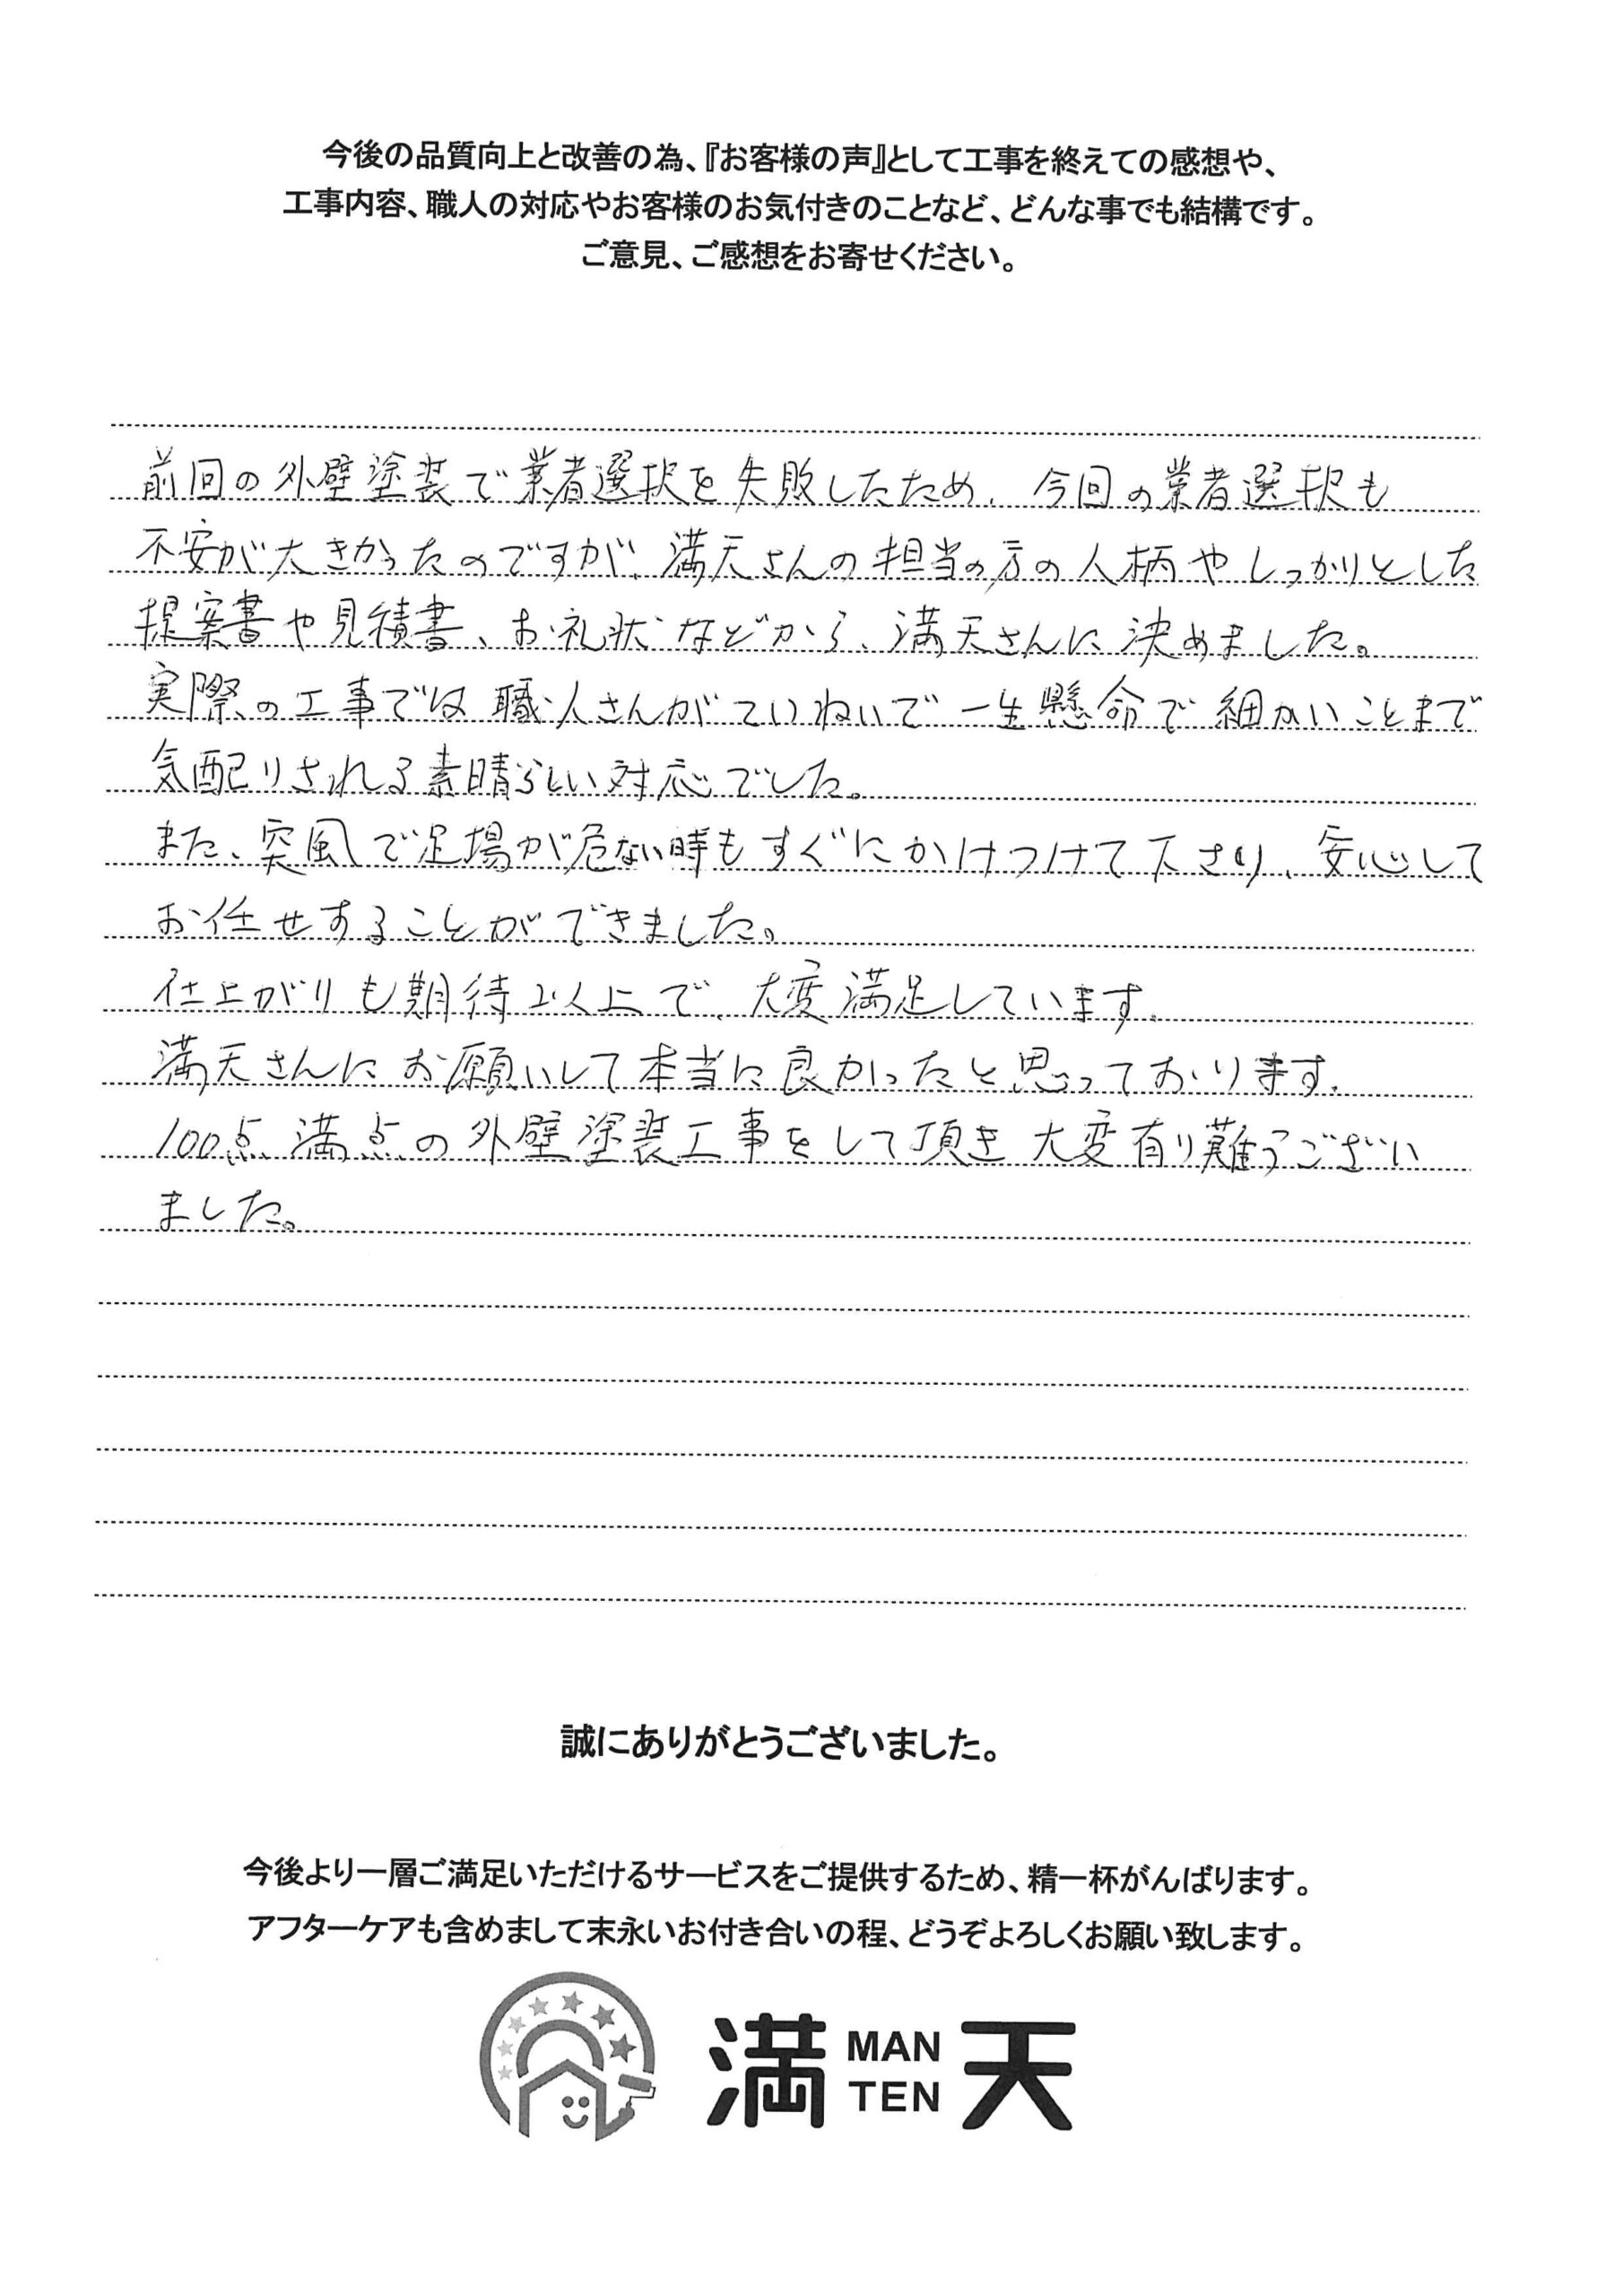 今後の品質向上と改善の為、『お客様の声』として工事を終えての感想や、
工事内容、職人の対応やお客様のお気付きのことなど、どんな事でも結構です。
ご意見、ご感想をお寄せください。
前回の外壁塗装で業者選択を失敗したため、今回の業者選択も
不安が大きかったのですが、満天さんの担当の方の人柄やしっかりとした
提案書や見積書、お礼状などから、満天さんに決めました。
実際の工事では職人さんがていねいで一生懸命で細かいことまで
気配りされる素晴らしい対応でした。
また、突風で足場が危ない時もすぐにかけつけて下さり、安心して
お任せすることができました。
仕上がりも期待以上で、大変満足しています。
満天さんにお願いして本当に良かったと思っております。
100点満点の外壁塗装工事をして頂き大変有り難うござい
ました。
誠にありがとうございました。
今後より一層ご満足いただけるサービスをご提供するため、精一杯がんばります。
アフターケアも含めまして末永いお付き合いの程、どうぞよろしくお願い致します。
満 MAN TEN 天